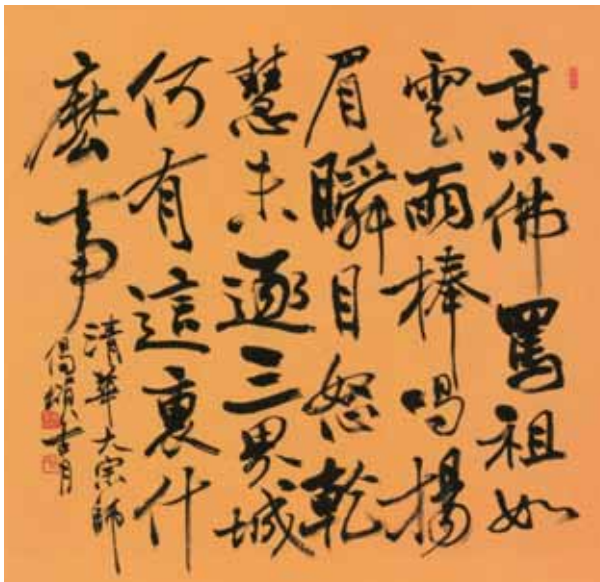 烹佛罵祖如
雲雨棒喝揚
眉瞬目怒乾
慧未逐三界城
何有這裏什
麽事
清華大宗師
偈頌